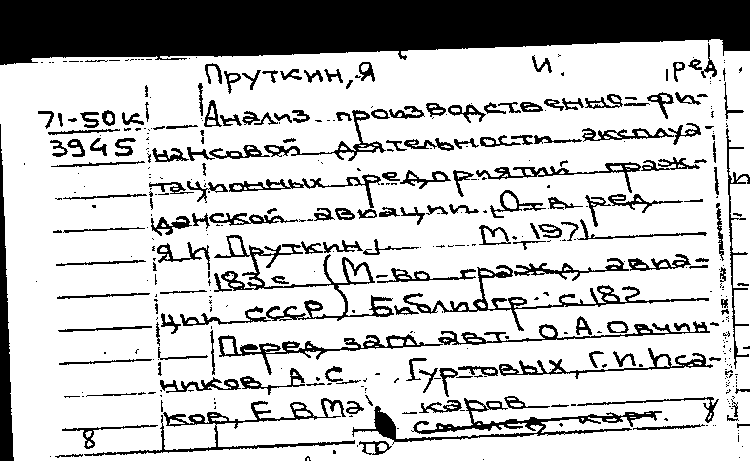 Пруткин, Я И. ред
71-50к Анализ производственно-фи-
3945 нансовой деятельности эксплуа-
тационных предприятий граж-
данской авиации. [Отв. ред
Я И Пруткин]. М., 1971.
183 с (М-во гражд. авиа-
ции СССР). Библиогр.: с. 182
Перед загл. авт. О. А. Овчин-
ников, А. С. Гуртовых, Г. И. Иса-
ков, Е. В. Ма каров
8 см след. карт.